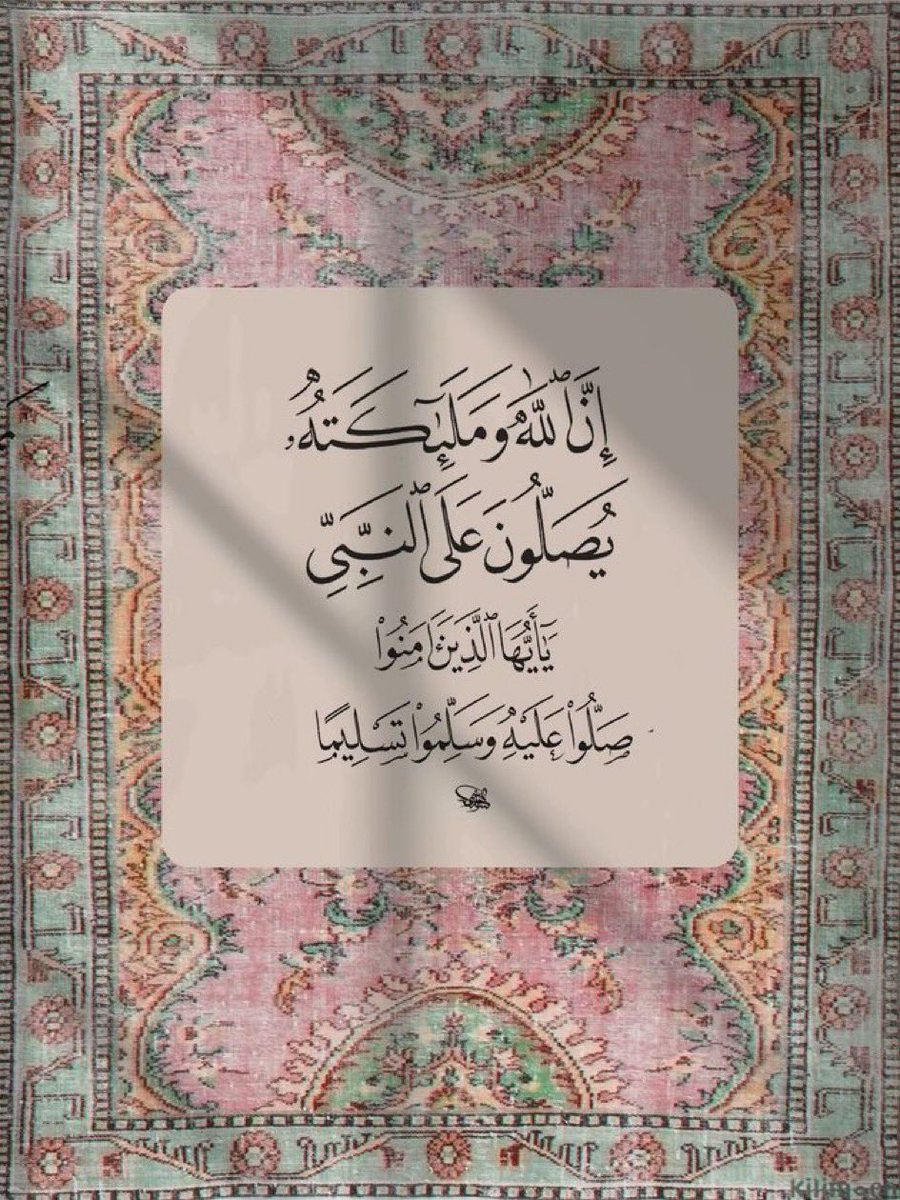 إِنَّ ٱللَّهَ وَمَلَٰٓئِكَتَهُۥ
يُصَلُّونَ عَلَى ٱلنَّبِىِّ
يَٰٓأَيُّهَا ٱلَّذِينَ ءَامَنُوا۟
صَلُّوا۟ عَلَيْهِ وَسَلِّمُوا۟ تَسْلِيمًا